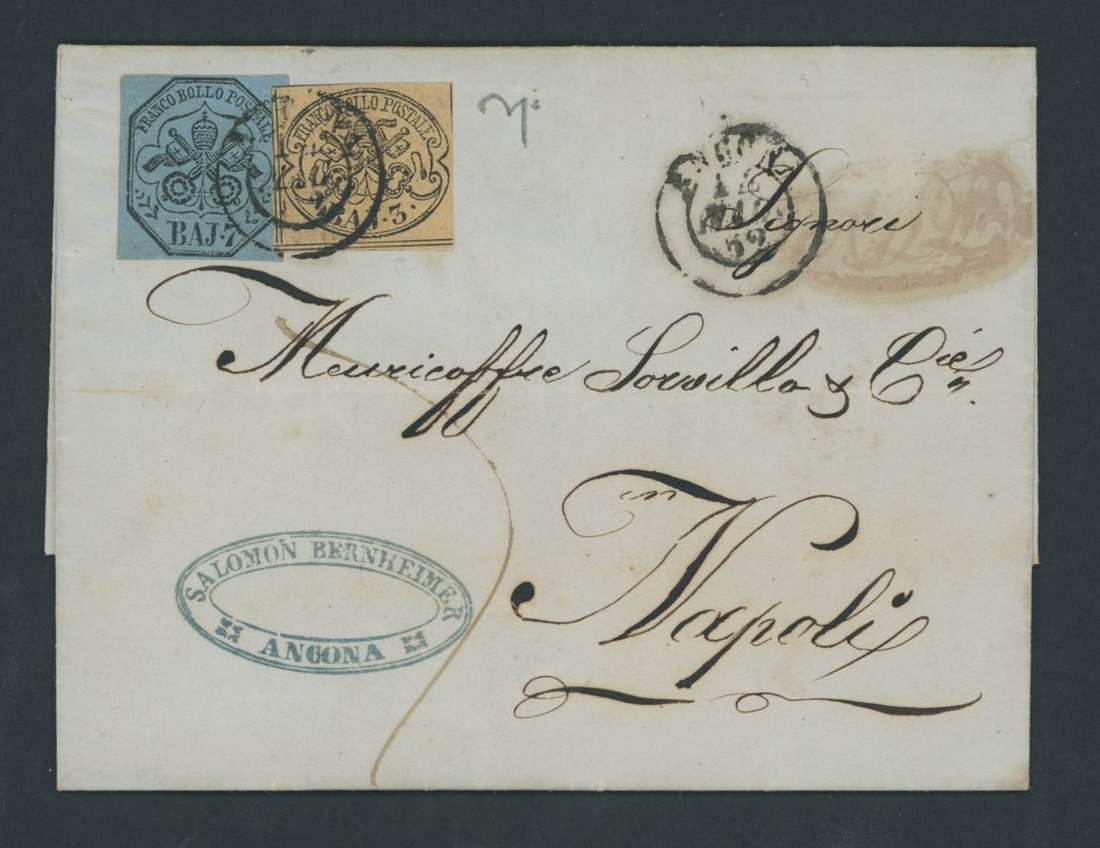 FRANCO BOLLO POSTALE
BAJ·7
FRANCO BOLLO POSTALE
BAJ·3·
ANCONA
52
Signori
Meuricoffre Sorvillo & Cie
in Napoli
SALOMON BERNHEIMER
ANCONA